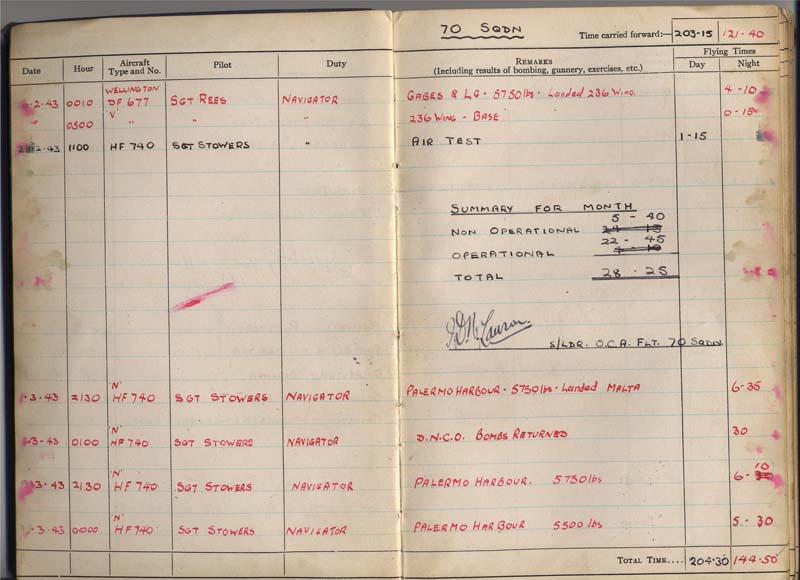 70 SQDN
Time carried forward:— 203-15 121-40
Date Hour Aircraft Type and No. Pilot Duty REMARKS (Including results of bombing, gunnery, exercises, etc.) Flying Times Day Night
WELLINGTON
-2-43 0010 DF 677 SGT REES NAVIGATOR GABES & LG - 5750lbs - Landed 236 WING. 4-10
" 0500 'V' " " " 236 WING - BASE 0-15
-2-43 1100 HF 740 SGT STOWERS " AIR TEST 1-15
SUMMARY FOR MONTH
5 - 40
NON OPERATIONAL
22 - 45
OPERATIONAL
TOTAL 28 . 25
S/LDR. O.C.A. FLT. 70 SQDN
'N'
-3-43 2130 HF 740 SGT STOWERS NAVIGATOR PALERMO HARBOUR - 5750lbs - Landed MALTA 6-35
'N'
-3-43 0100 HF 740 SGT STOWERS NAVIGATOR D.N.C.O. BOMBS RETURNED 30
'N'
3-43 2130 HF 740 SGT STOWERS NAVIGATOR PALERMO HARBOUR. 5750lbs 6-10
'N'
-3-43 0000 HF 740 SGT STOWERS NAVIGATOR PALERMO HARBOUR 5500 lbs 5-30
TOTAL TIME.... 204-30 144-50